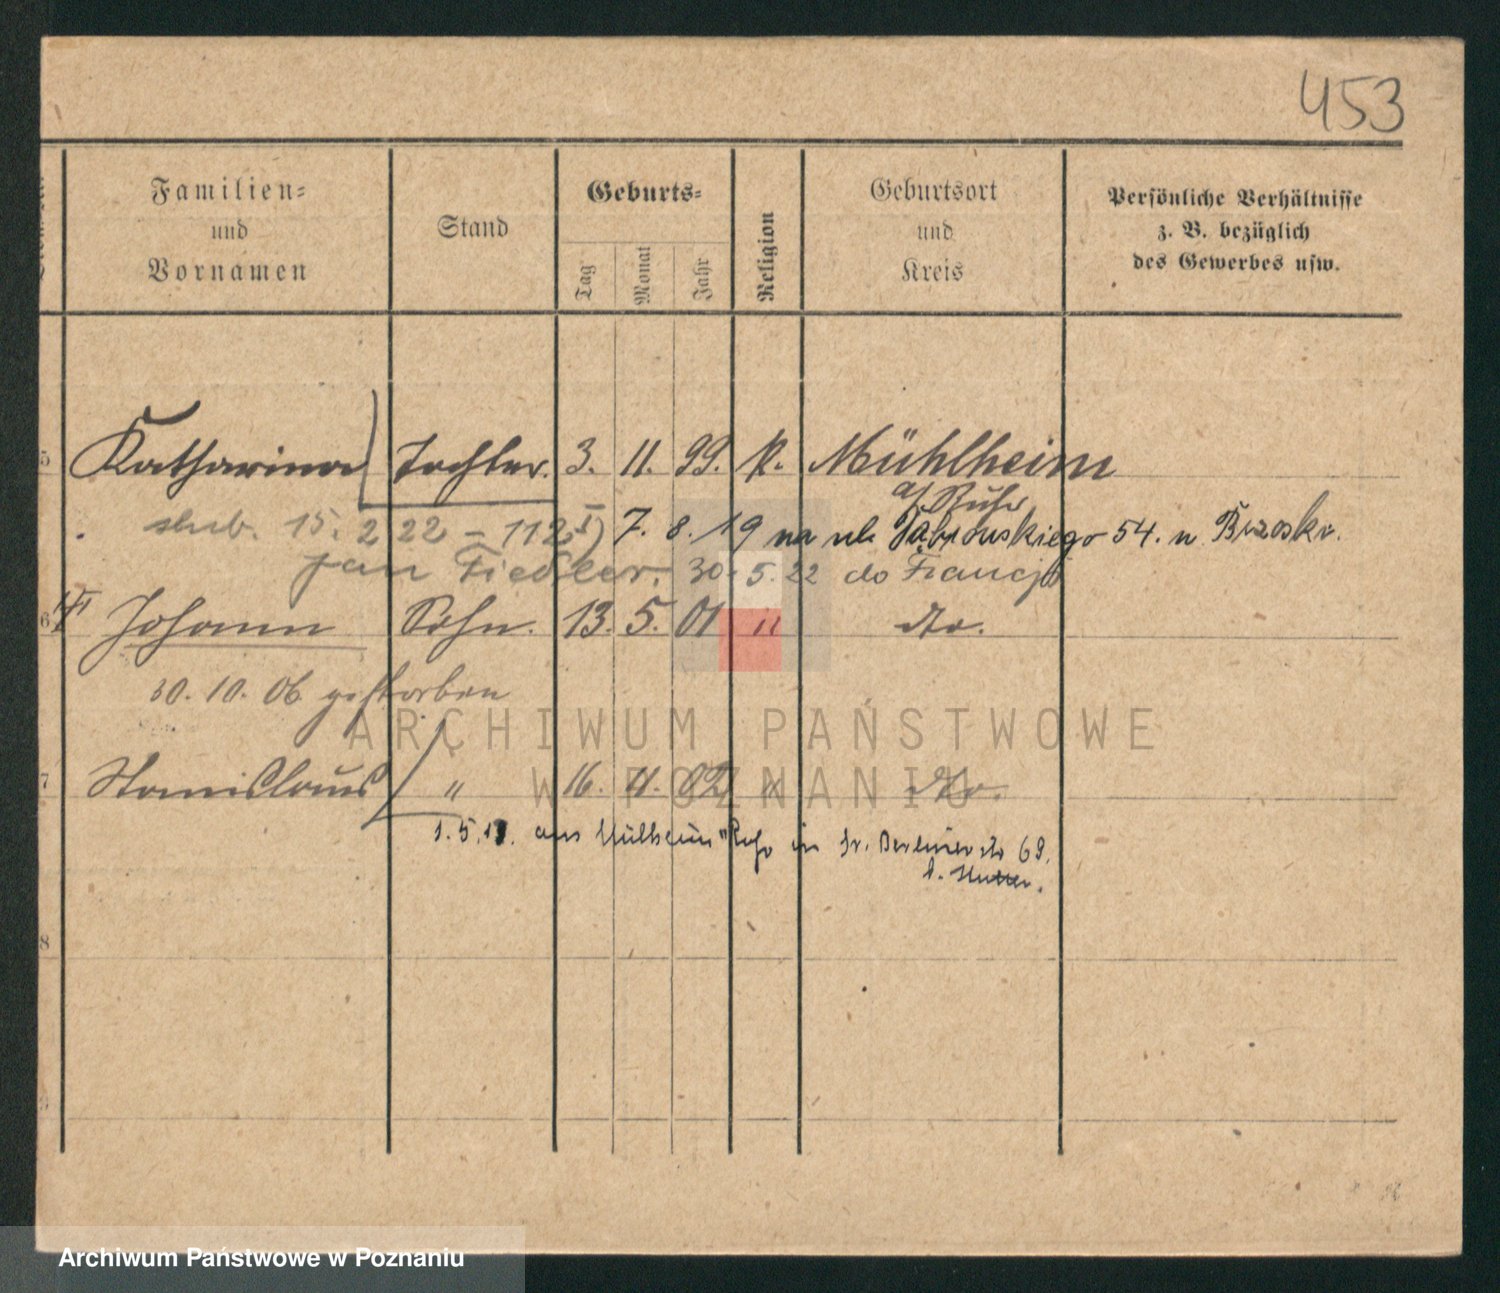 453
Familien=
und
Vornamen
Stand
Geburts=
Tag
Monat
Jahr
Religion
Geburtsort
und
Kreis
Persönliche Verhältnisse
z. B. bezüglich
des Gewerbes usw.
5 Katharina Tochter. 3. 11. 99. k. Mühlheim
a/Ruhr
ślub. 15. 2 22 = 112 I) 7. 8. 19 na ul. Dąbrowskiego 54. u
Jan Fiedler. 30. 5. 22 do Francji
6 Johann Sohn. 13. 5. 01 " dto.
30. 10. 06 gestorben
7 Stanislaus " 16. 4. 02 " dto.
1. 5. aus Mülheim Ruhr in Berlinerstr 68.
b. Mutter.
8
ARCHIWUM PAŃSTWOWE
W POZNANIU
Archiwum Państwowe w Poznaniu